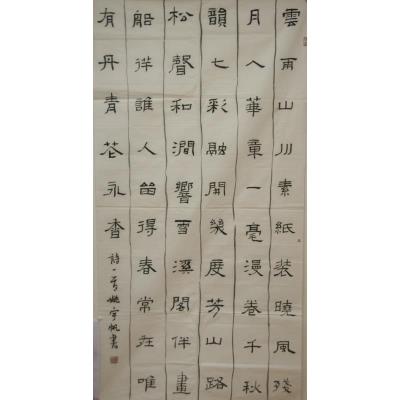 雲雨山川素紙裝曉風殘
月入華章一毫漫卷千秋
韻七彩融開幾度芳山路
松聲和澗響雪溪閣伴畫
船徉誰人留得春常在唯
有丹青花永香 詩一首 姚宇帆書